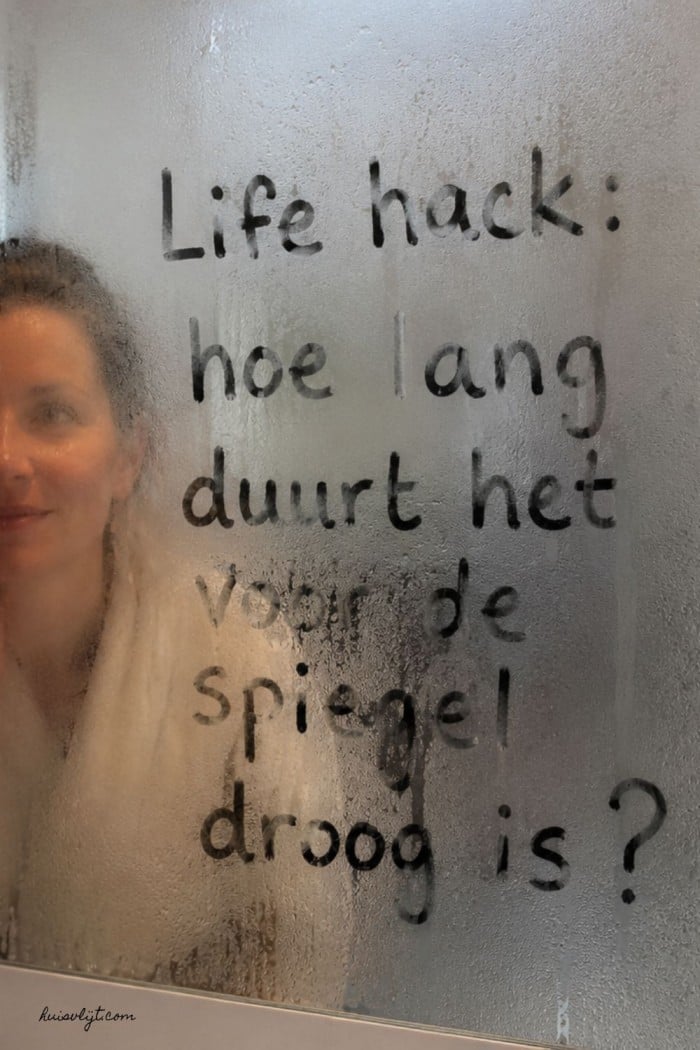 Life hack:
hoe lang
duurt het
voor de
spiegel
droog is?
huisvlijt.com